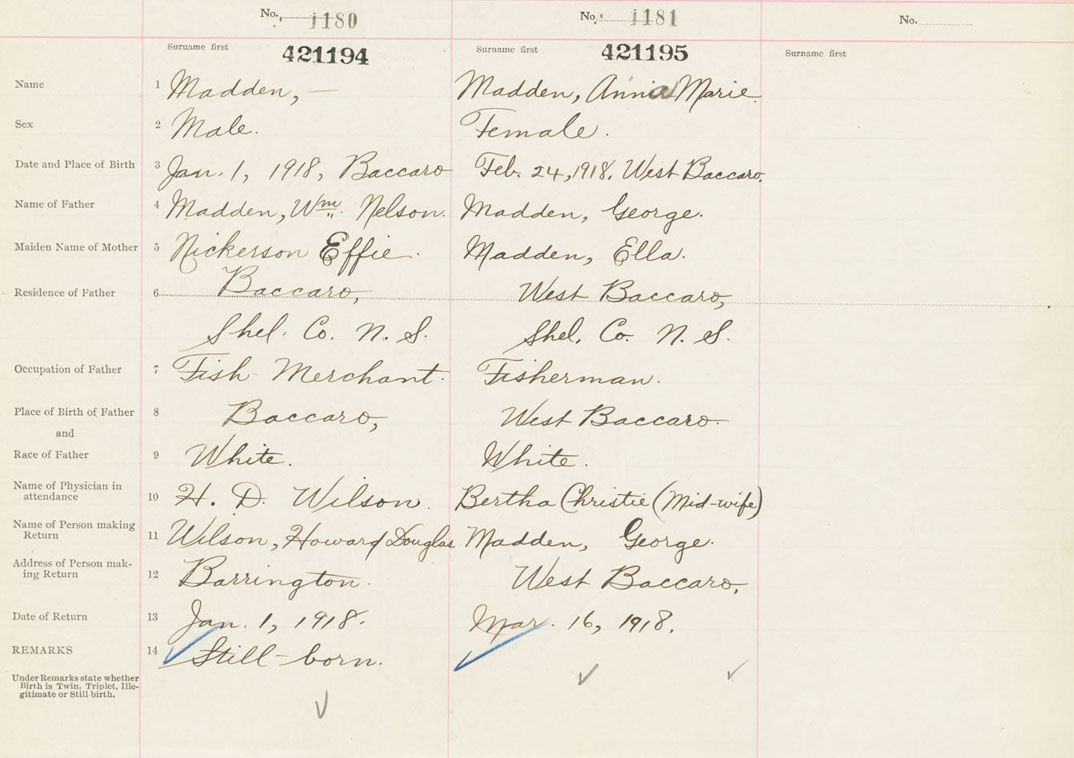 No. 1180 No. 1181 No.
Surname first 421194 Surname first 421195 Surname first
Name 1 Madden, — Madden, Anna Marie.
Sex 2 Male. Female.
Date and Place of Birth 3 Jan. 1, 1918, Baccaro Feb. 24, 1918. West Baccaro.
Name of Father 4 Madden, Wm. Nelson. Madden, George.
Maiden Name of Mother 5 Nickerson Effie. Madden, Ella.
Residence of Father 6 Baccaro, West Baccaro,
Shel. Co. N. S. Shel. Co. N. S.
Occupation of Father 7 Fish Merchant. Fisherman.
Place of Birth of Father 8 Baccaro, West Baccaro.
and
Race of Father 9 White. White.
Name of Physician in
attendance 10 H. D. Wilson. Bertha Christie (Mid-wife)
Name of Person making
Return 11 Wilson, Howard Douglas Madden, George.
Address of Person mak-
ing Return 12 Barrington. West Baccaro,
Date of Return 13 Jan. 1, 1918. Mar. 16, 1918.
REMARKS 14 Still-born.
Under Remarks state whether
Birth is Twin, Triplet, Ille-
gitimate or Still birth.